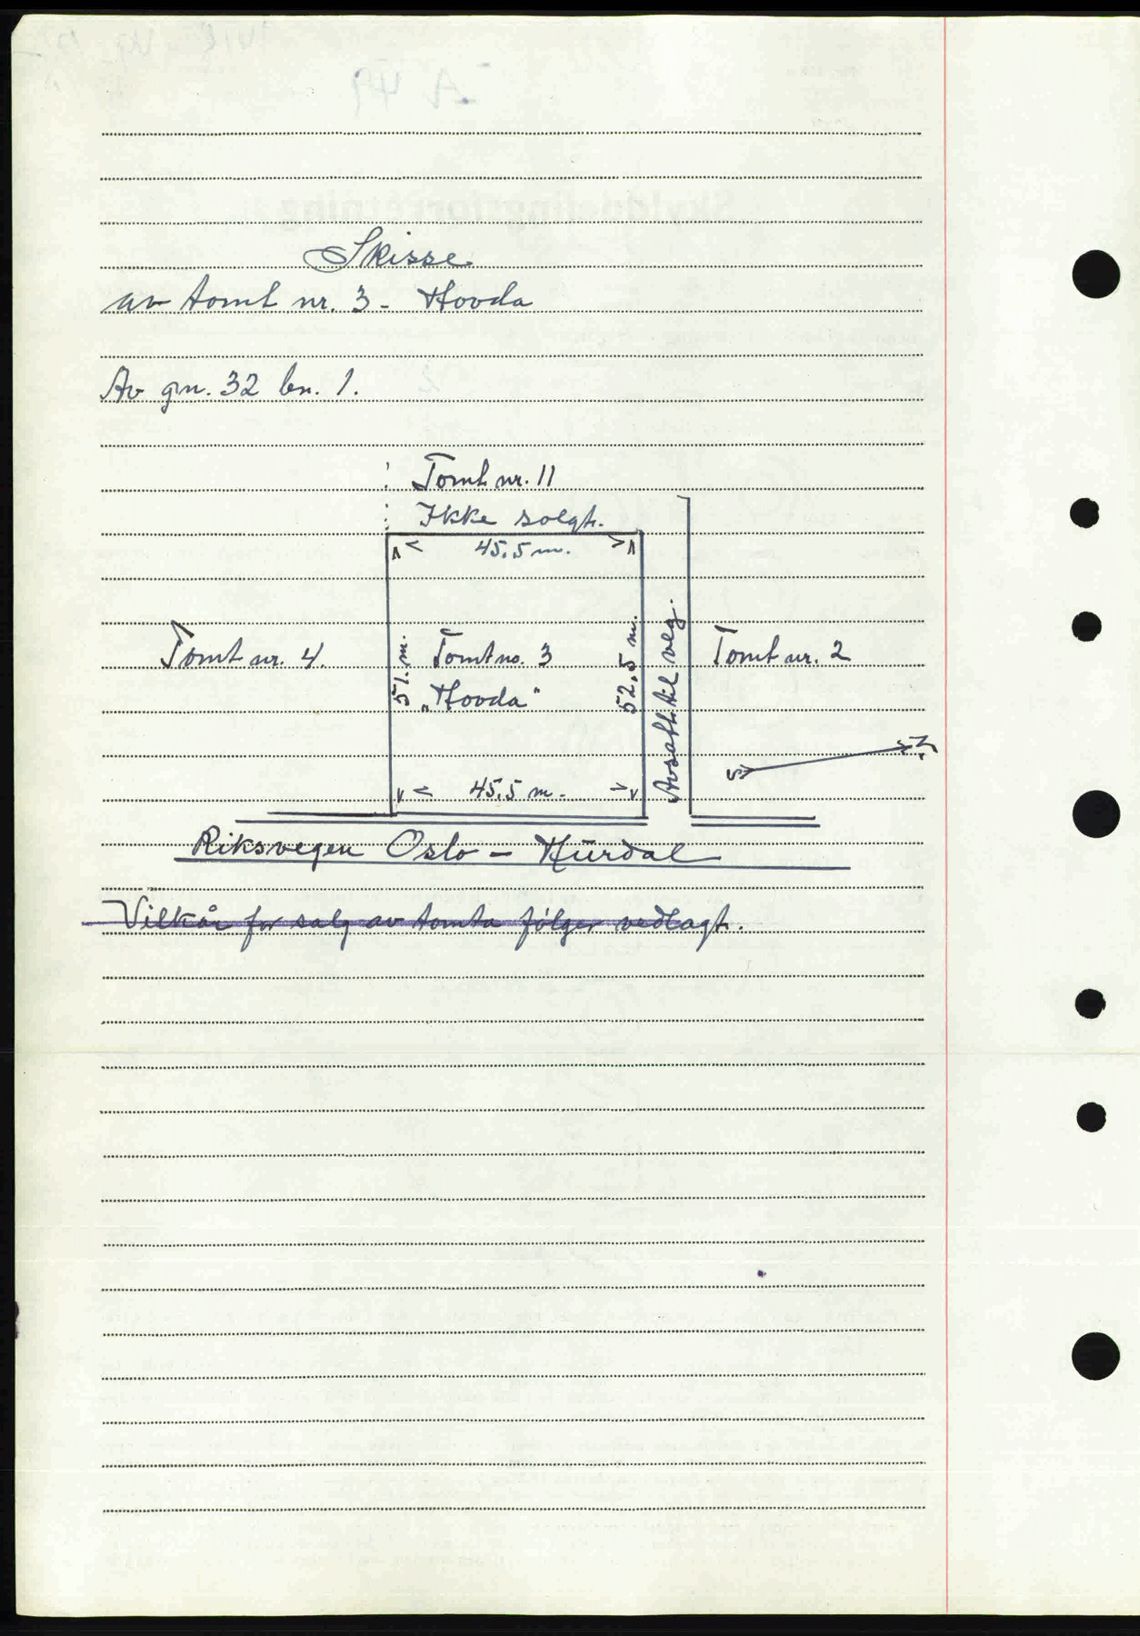 Skisse
av tomt nr. 3 - Hovda
Av gn. 32 bn. 1.
Tomt nr. 11
Ikke solgt.
45,5 m.
Tomt nr. 4.
51. m.
Tomt no. 3
„Hovda"
52,5 m.
Avsatt til veg.
Tomt nr. 2
S N
45,5 m.
Riksvegen Oslo - Hurdal
Vilkår for salg av tomta følger vedlagt.